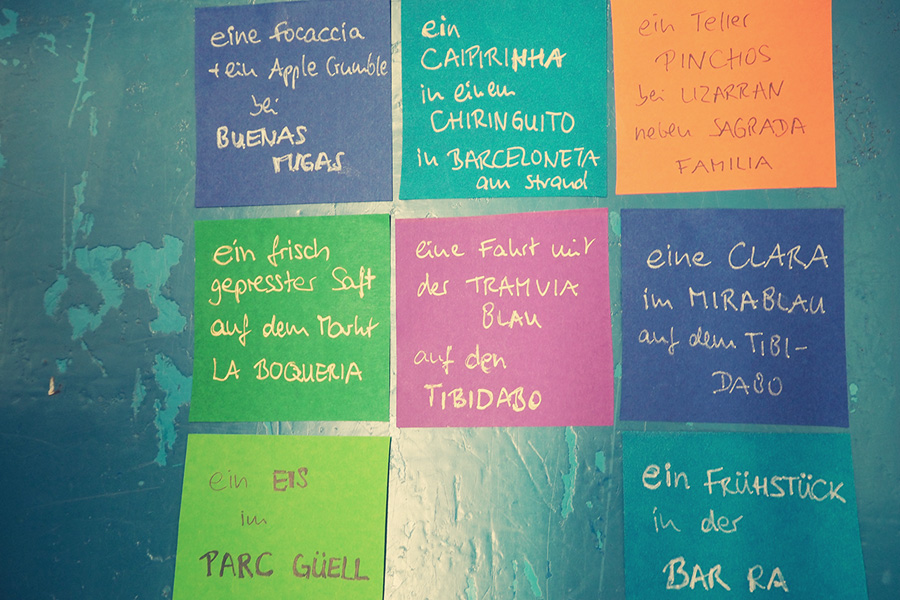 eine Focaccia
+ ein Apple Crumble
bei
BUENAS
MIGAS
ein
CAIPIRINHA
in einem
CHIRINGUITO
in BARCELONETA
am Strand
ein Teller
PINCHOS
bei LIZARRAN
neben SAGRADA
FAMILIA
ein frisch
gepresster Saft
auf dem Markt
LA BOQUERIA
eine Fahrt mit
der TRAMVIA
BLAU
auf den
TIBIDABO
eine CLARA
im MIRABLAU
auf dem TIBI-
DABO
ein EIS
im
PARC GÜELL
ein FRÜHSTÜCK
in der
BAR RA